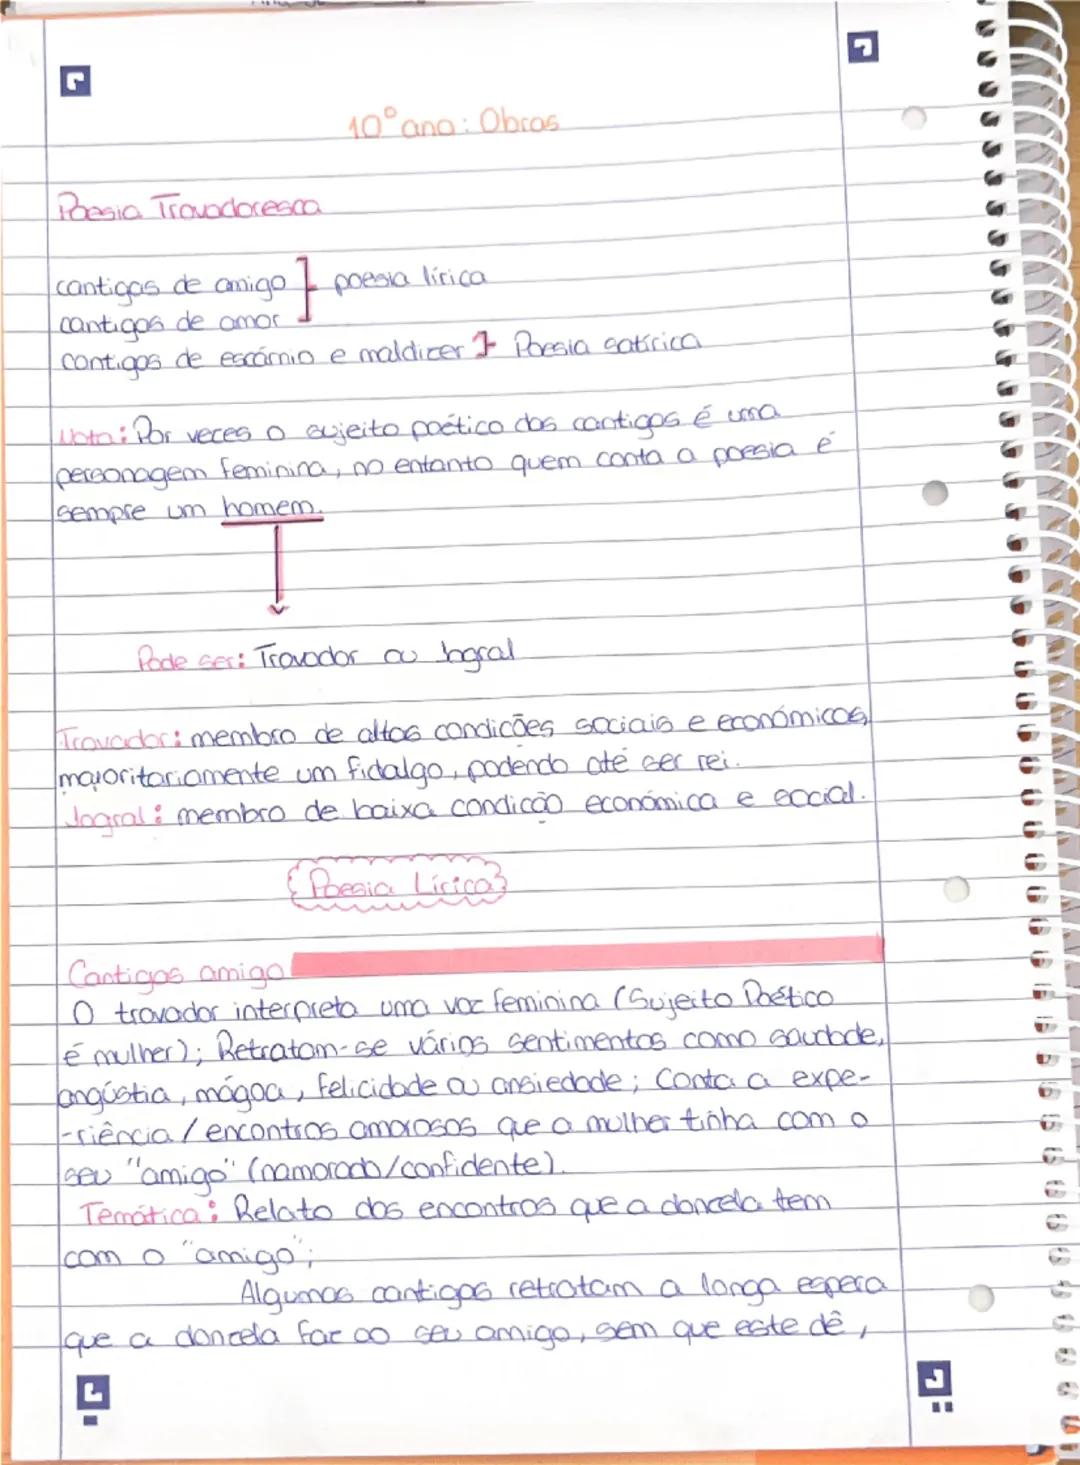 10º ano: Obras
Poesia Trovadoresca
cantigas de amigo } poesia lírica
cantigas de amor
cantigas de escárnio e maldizer } Poesia satírica
Nota: Por vezes o sujeito poético das cantigas é uma
personagem feminina, no entanto quem conta a poesia é
sempre um homem.
Pode ser: Trovador ou Jogral
Trovador: membro de altas condições sociais e económicas,
majoritariamente um fidalgo, podendo até ser rei.
Jogral: membro de baixa condição económica e social.
Poesia Lírica
Cantigas amigo
O trovador interpreta uma voz feminina (Sujeito Poético
é mulher); Retratam-se vários sentimentos como saudade,
angústia, mágoa, felicidade ou ansiedade; Conta a expe-
-riência / encontros amorosos que a mulher tinha com o
seu "amigo" (namorado/confidente).
Temática: Relato dos encontros que a donzela tem
com o "amigo";
Algumas cantigas retratam a longa espera
que a donzela faz ao seu amigo, sem que este dê,